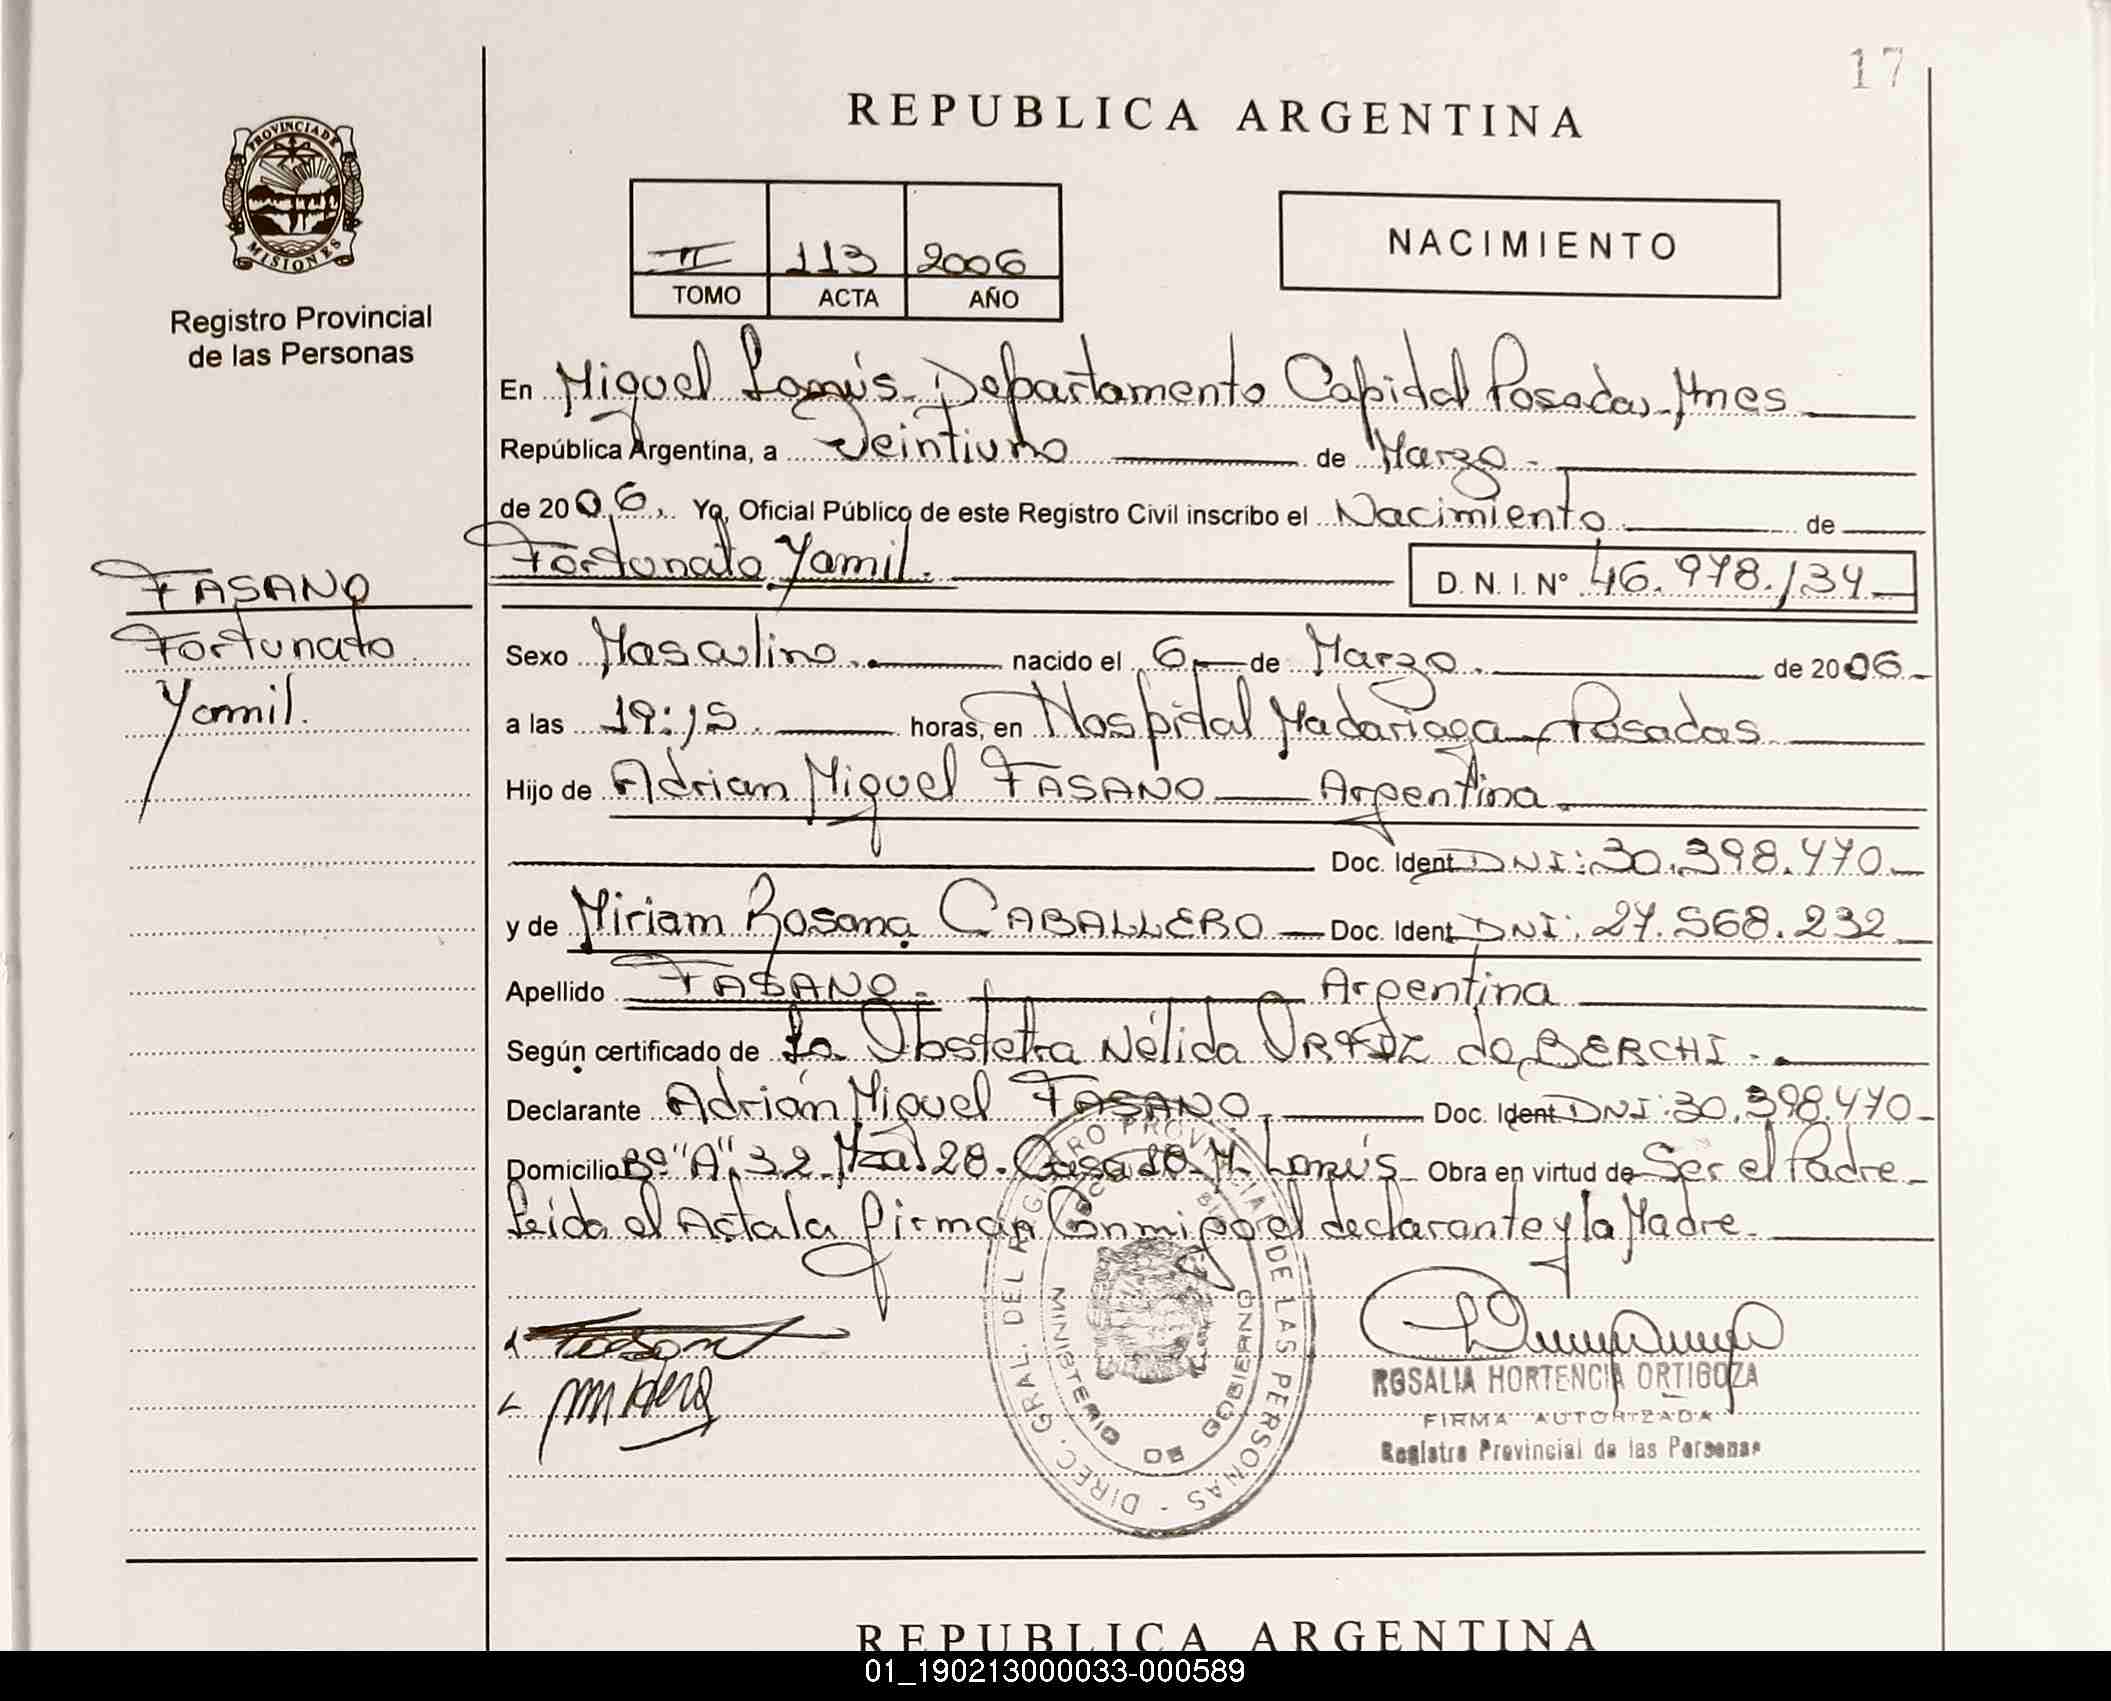 17
REPUBLICA ARGENTINA
PROVINCIA DE
MISIONES
Registro Provincial
de las Personas
II 113 2006
TOMO ACTA AÑO
NACIMIENTO
En Miguel Lanús - Departamento Capital Posadas - Mnes
República Argentina, a Veintiuno de Marzo -
de 2006. Yo, Oficial Público de este Registro Civil inscribo el Nacimiento de
Fortunato Yamil. D. N. I. N° 46.978.134
FASANO
Fortunato
Yamil.
Sexo Masculino. nacido el 6 de Marzo. de 2006
a las 19:15 horas, en Hospital Madariaga - Posadas
Hijo de Adrian Miguel FASANO Argentina
Doc. Ident DNI: 30.398.470
y de Miriam Rosana CABALLERO Doc. Ident DNI: 27.568.232
Apellido FASANO. Argentina
Según certificado de La Obstetra Nélida de BERCHI.
Declarante Adrián Miguel FASANO Doc. Ident DNI: 30.398.470
Domicilio Bº "A" 32 - Mza 28. Casa M. Lanús Obra en virtud de Ser el Padre
Leída el Acta la firman Conmigo el declarante y la Madre.
DIREC. GRAL. DEL REGISTRO PROVINCIAL DE LAS PERSONAS
MINISTERIO DE GOBIERNO
ROSALIA HORTENCIA ORTIGOZA
FIRMA AUTORIZADA
Registro Provincial de las Personas
REPUBLICA ARGENTINA
01_190213000033-000589